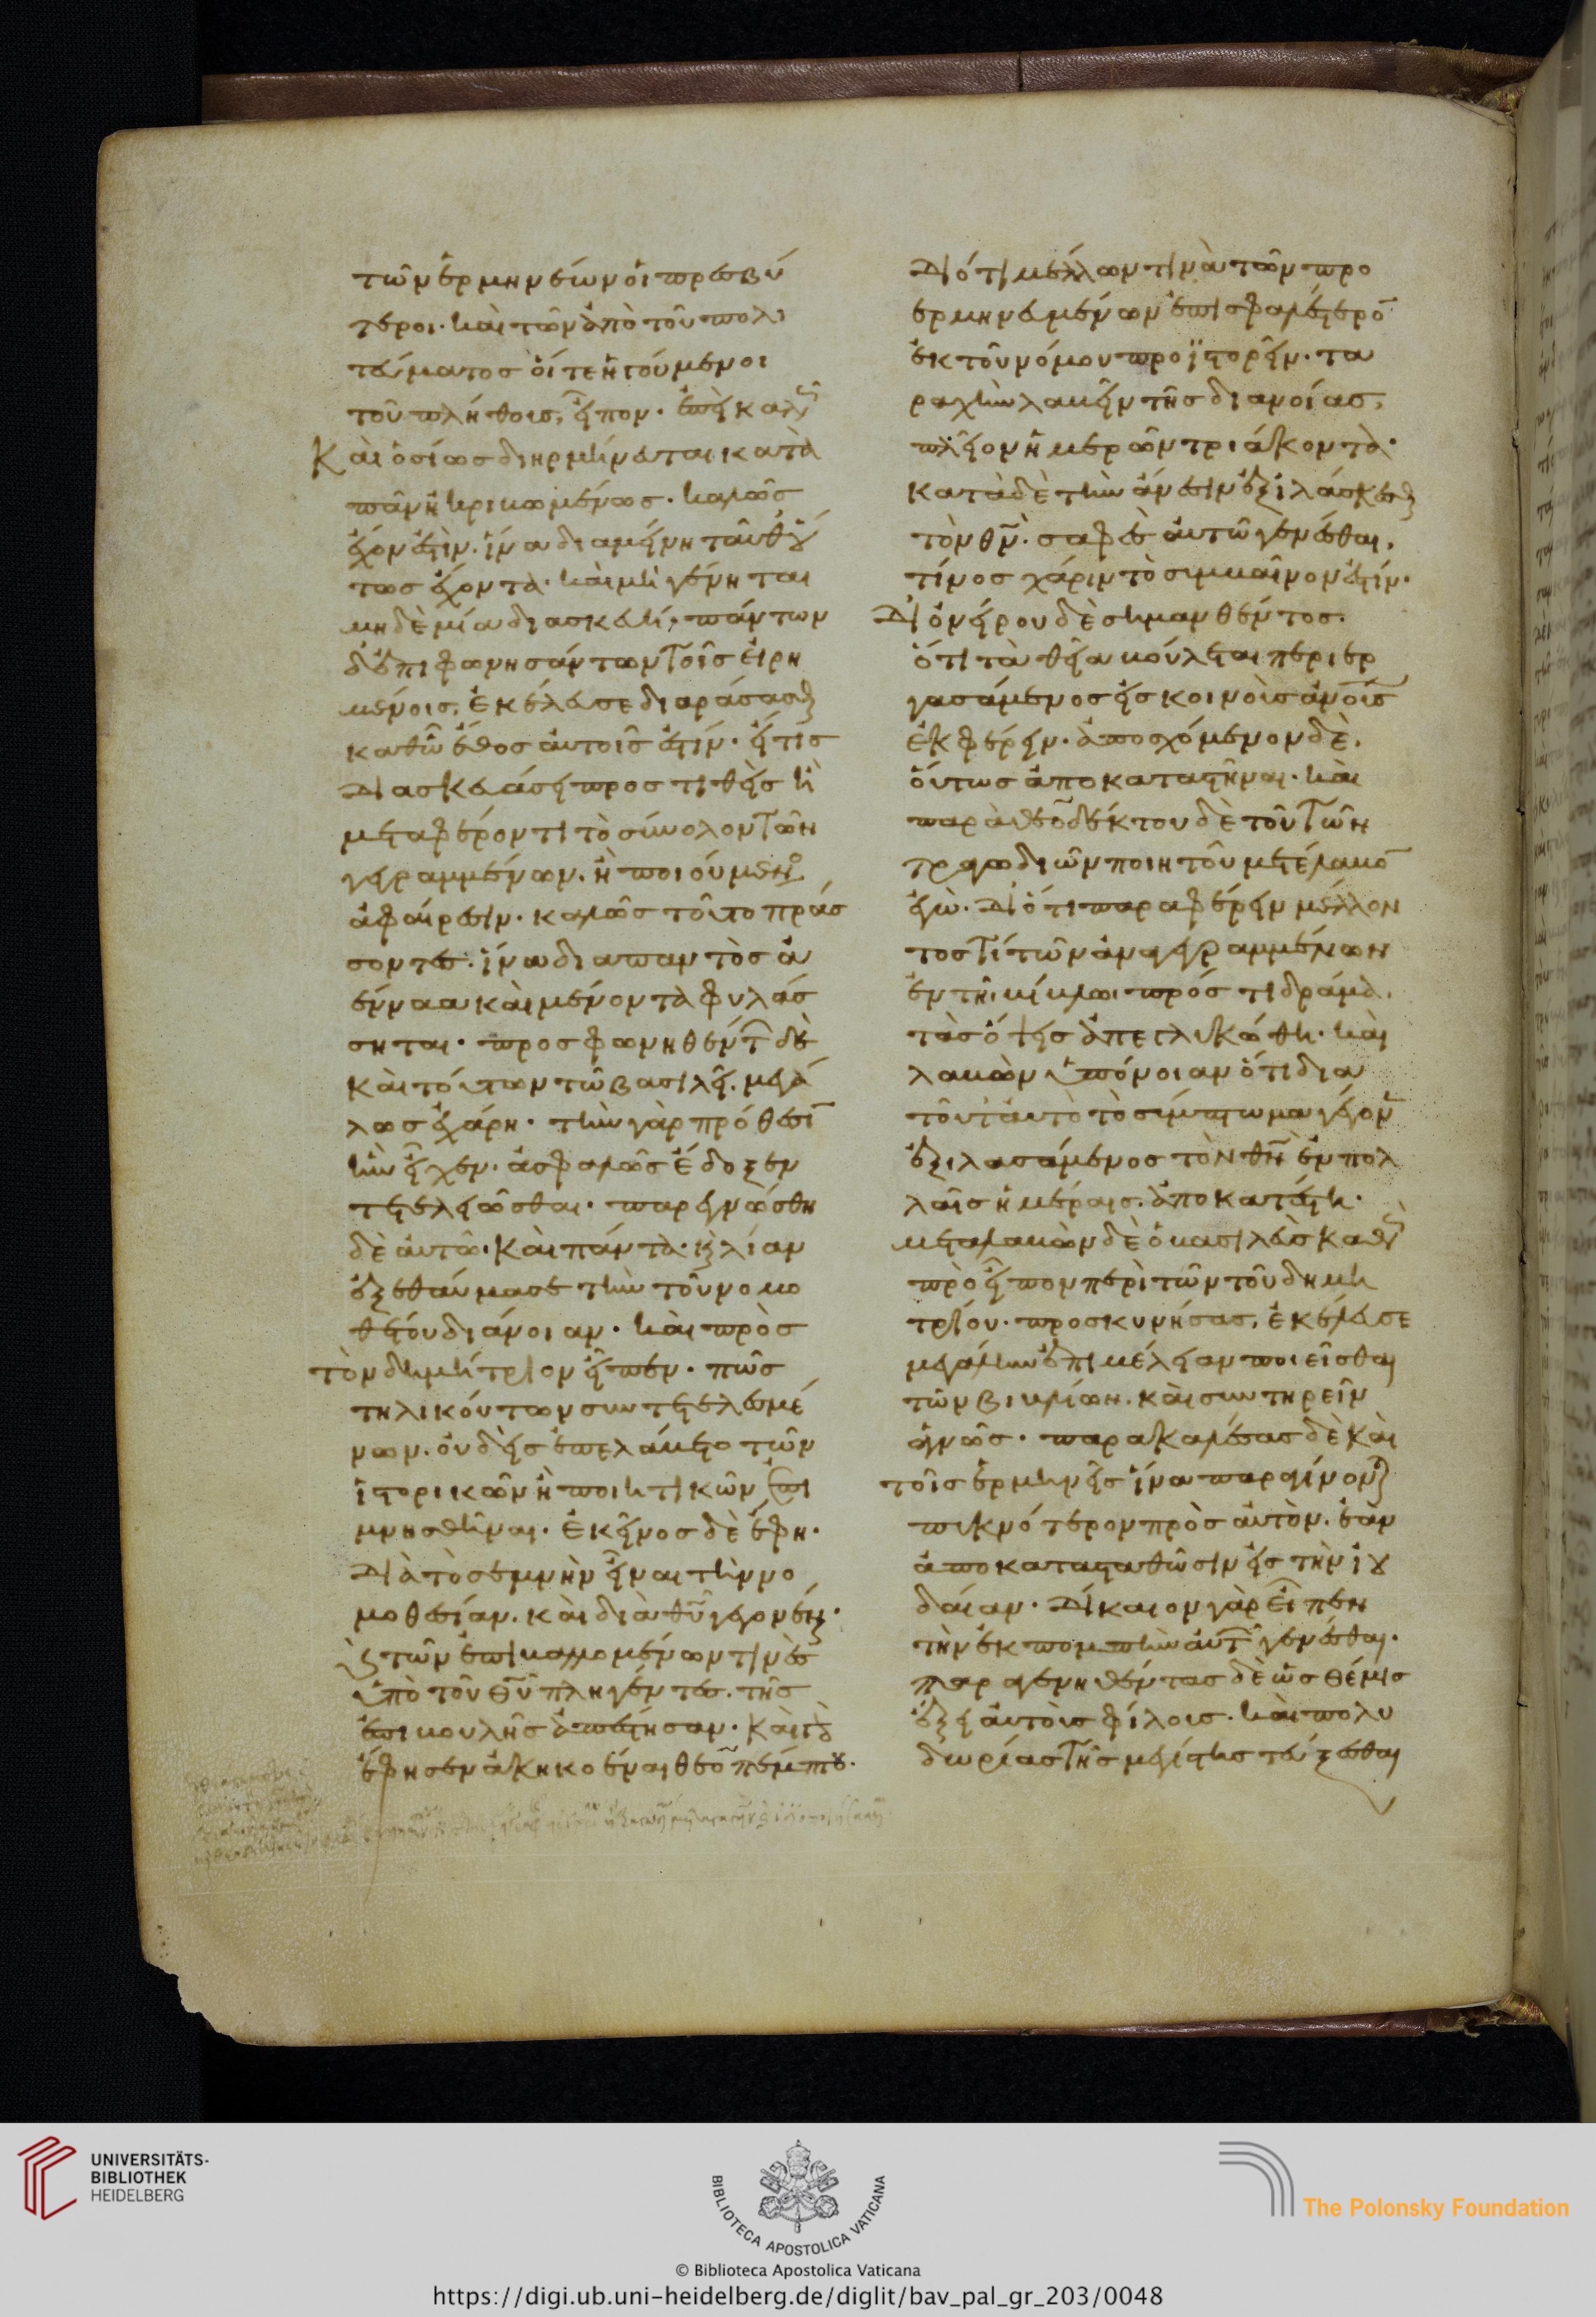 τῶν ἑρμηνέων οἱ πρεσβύ
τεροι. καὶ τῶν ἀπὸ τοῦ πολι
τεύματος οἵ τε ἡγούμενοι
τοῦ πλήθους, εἶπον. ἐπεὶ καλῶς
Καὶ ὁσίως διηρμήνευται κατὰ
πᾶν ἠκριβωμένως. καλῶς
ἔχον ἐστιν. ἵνα διαμείνῃ ταῦθ' οὕ
τως ἔχοντα. καὶ μὴ γένηται
μηδὲ μία διασκευή. πάντων
δ' ἐπιφωνησάντων τοῖς εἰρη
μένοις, ἐκέλευσε διαράσασθαι
καθὼς ἔθος αὐτοῖς ἐστίν. εἴ τις
διασκευάσει προστιθεὶς ἢ
μεταφέρον τι τὸ σύνολον τῶν
γεγραμμένων. ἢ ποιούμενος
ἀφαίρεσιν. καλῶς τοῦτο πράσ
σοντες. ἵνα διαπαντὸς ἀ
έννaα καὶ μένοντα φυλάσ
σηται. προσφωνηθέντων δὲ
καὶ τούτων τῷ βασιλεῖ. μεγά
λως ἐχάρη. τὴν γὰρ πρόθεσιν
ἣν εἶχεν. ἀσφαλῶς ἔδοξεν
τετελειῶσθαι. παρεγνώσθη
δὲ αὐτῷ. Καὶ πάντα. καὶ λίαν
ἐξεθαύμασε τὴν τοῦ νομο
θέτου διάνοιαν. καὶ πρὸς
τὸν δημήτριον εἶπεν. πῶς
τηλικούτων συντετελεσμέ
νων. οὐδεὶς ἐπελάβετο τῶν
ἱστορικῶν ἢ ποιητικῶν ἐπι
μνησθῆναι. ἐκεῖνος δὲ ἔφη.
Διὰ τὸ σεμνὴν εἶναι τὴν νο
μοθεσίαν. καὶ διὰ θῦ γεγονέναι.
καὶ τῶν ἐπιβαλλομένων τινὲς
ὑπὸ τοῦ θῦ πληγέντες. τῆς
ἐπιβουλῆς ἀπέστησαν. Καὶ γὰρ
ἔφησεν ἀκηκοέναι θεοπέμπου.
Διότι μέλλων τινὰ τῶν προ
ερμηνευμένων ἐπισφαλέστερον
ἐκ τοῦ νόμου προϊστορεῖν. τα
ραχὴν λαβεῖν τῆς διανοίας,
πλεῖον ἡμερῶν τριάκοντα.
κατὰ δὲ τὴν ἄνεσιν ἐξιλάσκεσθαι
τὸν θν. σαφὲς αὐτῷ γενέσθαι,
τίνος χάριν τὸ συμβαῖνον ἐστίν.
Δι' ὀνείρου δὲ σημανθέντος.
ὅτι τὰ θεῖα βούλεται περιερ
γασάμενος εἰς κοινοὺς ἀνοῖς
ἐκφέρειν. ἀποσχόμενον δὲ.
οὕτως ἀποκαταστῆναι. καὶ
παρὰ θεοδέκτου δὲ τοῦ τῶν
τραγῳδιῶν ποιητοῦ μετέλαβον
ἐγὼ. Διότι παραφέρειν μέλλον
τος τί τῶν ἀναγεγραμμένων
ἐν τῇ βίβλῳ πρός τι δρᾶμα.
τὰς ὄψεις ἀπεγλαυκώθη. καὶ
λαβὼν ὑπόνοιαν ὅτι διὰ
τοῦτ' αὐτὸ τὸ σύμπτωμα γέγονεν
ἐξιλασάμενος τὸν θν ἐν πολ
λαῖς ἡμέραις. ἀποκατέστη.
μεταλαβὼν δὲ ὁ βασιλεὺς καθὼς
πρὸ εἶπον περὶ τῶν τοῦ δημη
τρίου. προσκυνήσας, ἐκέλευσε
μεγάλην ἐπιμέλειαν ποιεῖσθαι
τῶν βιβλίων. καὶ συντηρεῖν
ἁγνῶς. παρακαλέσας δὲ καὶ
τοῖς ἑρμηνεῖς ἵνα παραγίνονται
πυκνότερον πρὸς αὐτὸν. ἐὰν
ἀποκατασταθῶσιν εἰς τὴν ἰου
δαίαν. Δίκαιον γὰρ εἶπεν
τὴν ἐκπομπὴν αὐτῶν γενέσθαι.
παραγενηθέντας δὲ ὡς θέμις
ἕξει αὐτοὺς φίλους. καὶ πολυ
δωρίας τῆς μεγίστης τεύξεσθαι
UNIVERSITÄTS-
BIBLIOTHEK
HEIDELBERG
BIBLIOTECA APOSTOLICA VATICANA
The Polonsky Foundation
© Biblioteca Apostolica Vaticana
https://digi.ub.uni-heidelberg.de/diglit/bav_pal_gr_203/0048